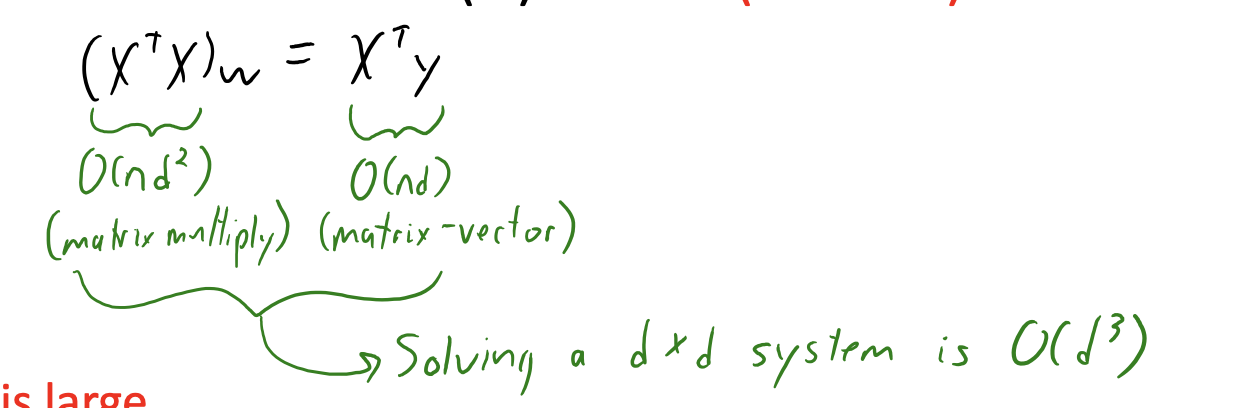 (X^T X)w = X^T y
O(nd²) O(nd)
(matrix multiply) (matrix-vector)
Solving a d×d system is O(d³)
is large